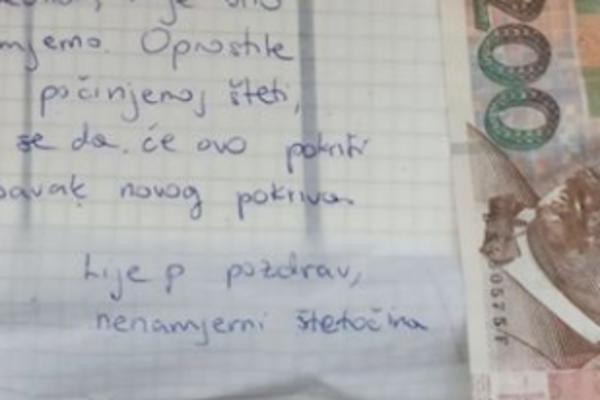 mjemo. Oprostite
počinjenoj šteti,
se da će ovo pokriti
bavak novog pokriva
Lijep pozdrav,
nenamjerni štetočina
200